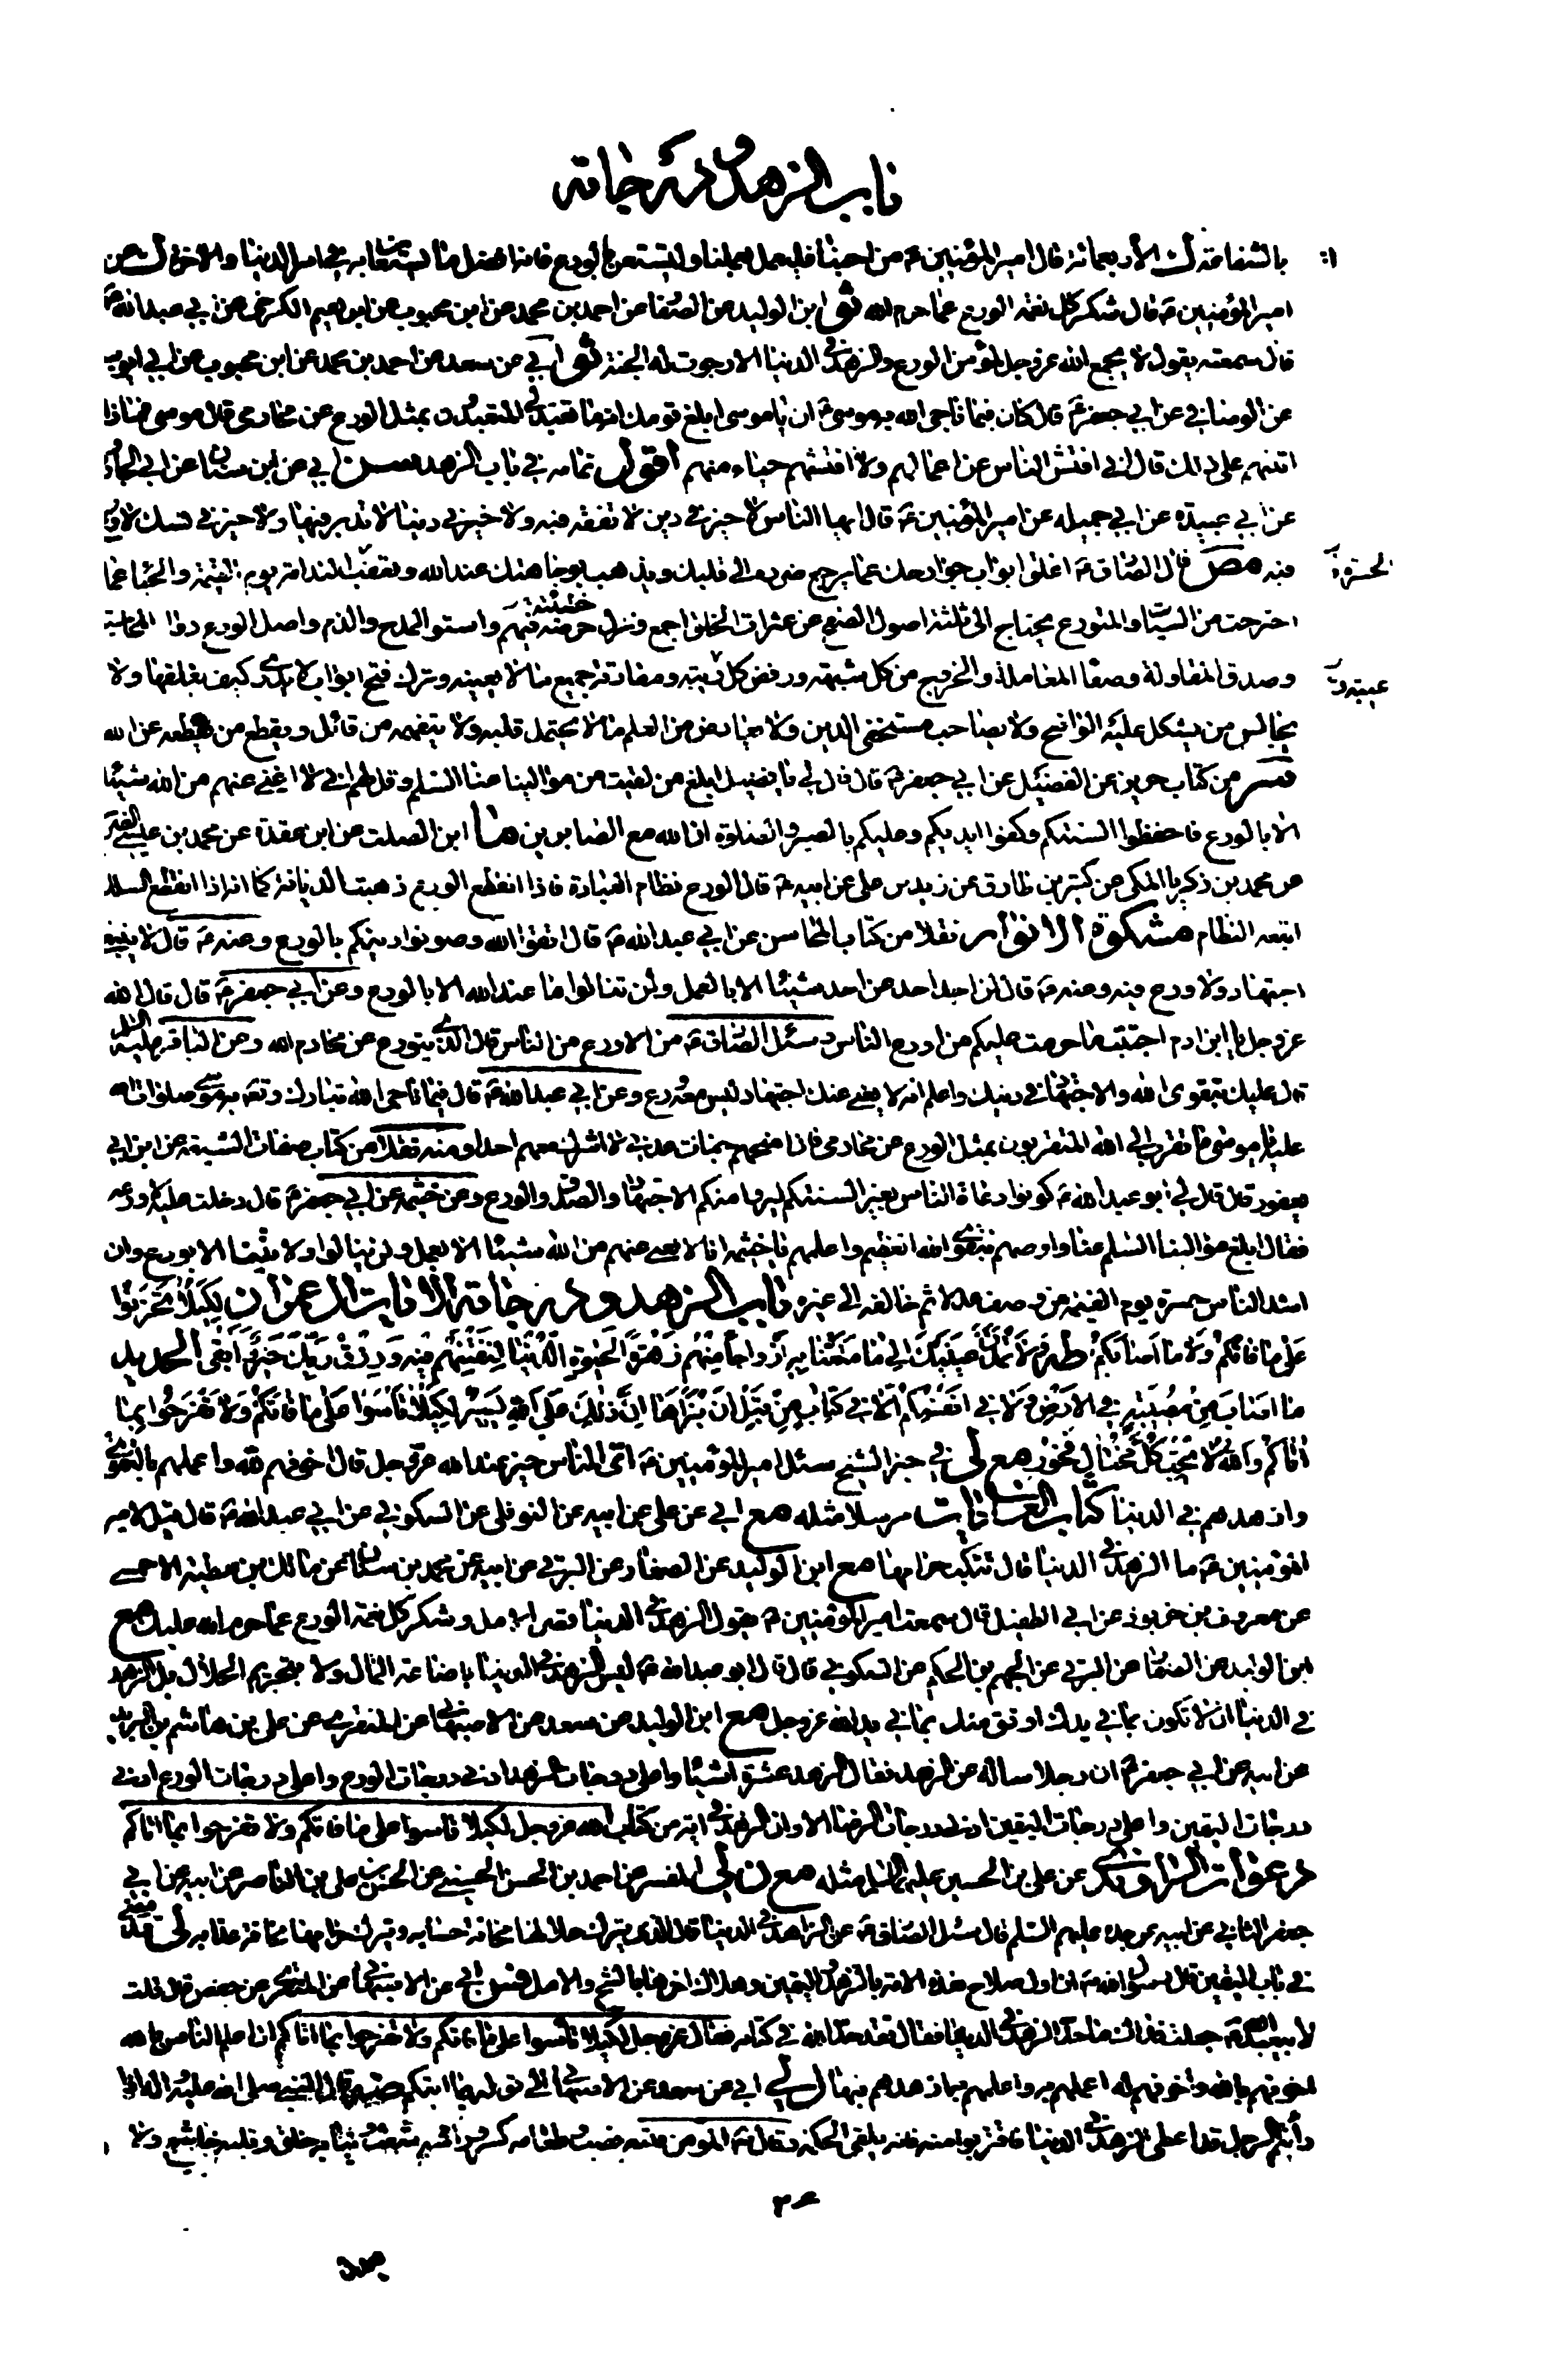 باب الزهد و درجاته
بالشفاعة ل الأربعمائة قال امير المؤمنين ع من احبنا فليعمل بعملنا وليستعن بالورع فانه افضل ما يستعان به في امر الدنيا والاخرة ل عن
امير المؤمنين ع قال شكر كل نعمة الورع عما حرم الله ثو ابن الوليد عن الصفار عن احمد بن محمد عن ابن محبوب عن ابراهيم الكرخي عن ابي عبد الله ع
قال سمعته يقول لا يجمع الله عز وجل لمؤمن الورع والزهد في الدنيا الا رجوت له الجنة ثو ابي عن سعد عن احمد بن محمد عن ابن محبوب عن ابي ايوب
عن الوصافي عن ابي جعفر ع قال كان فيما ناجى الله به موسى ع ان يا موسى ابلغ قومك انه ما تعبد لي المتعبدون بمثل الورع عن محارمي قال موسى فماذا
اثبتهم على ذلك قال اني افتش الناس عن اعمالهم ولا افتشهم حياء منهم اقول تمامه في باب الزهد سن ابي عن ابن سنان عن ابي الجارود
عن ابي عبيدة عن ابي جميله عن امير المؤمنين ع قال ايها الناس لا خير في دين لا تفقه فيه ولا خير في دنيا لا تدبر فيها ولا خير في نسك لا ورع
فيه مص قال الصادق ع اغلق ابواب جوارحك عما يرجع ضرره الى قلبك ويذهب بوجاهتك عند الله وتعقب الندامة يوم القيمة والحياء عما
الحسرة
اجترحت من السيئات والمتورع يحتاج الى ثلثة اصول الصفح عن عثرات الخلق اجمع وترك خطيئته فيهم واستواء المدح والذم واصل الورع دوام المحاسبة
وصدق المقاولة وصفاء المعاملة والخروج من كل شبهة ورفض كل ريبة ومفارقة جميع ما لا يعنيه وترك فتح ابواب لا يدري كيف يغلقها ولا
عيبة
يجالس من يشكل عليه الواضح ولا يصاحب مستخفي الدين ولا يعارض من العلم ما لا يحتمل قلبه ولا يتفهمه من قائل ويقطع من يقطعه عن الله
سر من كتاب حريز عن الفضيل عن ابي جعفر ع قال قال لي يا فضيل ابلغ من لقيت من موالينا عنا السلم وقل لهم اني لا اغني عنهم من الله شيئا
الا بالورع فاحفظوا السنتكم وكفوا ايديكم وعليكم بالصبر والصلوة ان الله مع الصابرين ما ابن الصلت عن ابن عقدة عن محمد بن عيسى
عن محمد بن زكريا المكي عن كثير بن طارق عن زيد بن علي عن ابيه ع قال الورع نظام العبادة فاذا انقطع الورع ذهبت الديانة كما انه اذا انقطع السلك
اتبعه النظام مشكوة الانوار نقلا من كتاب المحاسن عن ابي عبد الله ع قال اتقوا الله وصونوا دينكم بالورع وعنه ع قال لا ينفع
اجتهاد ولا ورع فيه وعنه ع قال لن اجدا احد عن احد شيئا الا بالعمل ولن تنالوا ما عند الله الا بالورع وعن ابي جعفر ع قال قال الله
عز وجل يا ابن ادم اجتنب ما حرمت عليكم من اورع الناس وسئل الصادق ع من الاورع من الناس قال الذي يتورع عن محارم الله وعن الباقر عليه السلم
قال عليك بتقوى الله والاجتهاد في دينك واعلم انه لا يغني عنك اجتهاد ليس معه ورع وعن ابي عبد الله ع قال فيما ناجى الله تبارك وتعالى به موسى صلوات الله
عليه يا موسى ما تقرب الى الله المتقربون بمثل الورع عن محارمي فاني امنحهم جنات عدني لا اشرك معهم احدا ومنه نقلا من كتاب صفات الشيعة عن ابن ابي
يعفور قال قال لي ابو عبد الله ع كونوا دعاة الناس بغير السنتكم ليروا منكم الاجتهاد والصدق والورع وعن خيثمة عن ابي جعفر ع قال دخلت عليه لاودعه
فقال ابلغ موالينا السلم عنا واوصهم بتقوى الله العظيم واعلمهم يا خيثمة انا لا نغني عنهم من الله شيئا الا بعمل ولن ينالوا ولايتنا الا بورع وان
اشد الناس حسرة يوم القيمة من وصف عدلا ثم خالفه الى غيره باب الزهد ودرجاته الايات ال عمران لكيلا تحزنوا
على ما فاتكم ولا ما اصابكم طه ولا تمدن عينيك الى ما متعنا به ازواجا منهم زهرة الحيوة الدنيا لنفتنهم فيه ورزق ربك خير وابقى الحديد
ما اصاب من مصيبة في الارض ولا في انفسكم الا في كتاب من قبل ان نبراها ان ذلك على الله يسير لكيلا تاسوا على ما فاتكم ولا تفرحوا بما
اتاكم والله لا يحب كل مختال فخور مع لي في خبر الشيخ سئل امير المؤمنين ع اي الناس خير عند الله عز وجل قال اخوفهم لله واعملهم بالتقوى
وازهدهم في الدنيا كتاب الغايات مرسلا مثله مع ابي عن علي عن ابيه عن النوفلي عن السكوني عن ابي عبد الله ع قال قيل لامير
المؤمنين ع ما الزهد في الدنيا قال تنكب حرامها مع ابن الوليد عن الصفار عن البرقي عن ابيه عن محمد بن سنان عن مالك بن عطية الاحمسي
عن معروف بن خربوذ عن ابي الطفيل قال سمعت امير المؤمنين ع يقول الزهد في الدنيا قصر الامل وشكر كل نعمة الورع عما حرم الله عليك مع
ابن الوليد عن الصفار عن البرقي عن الجهم بن الحكم عن السكوني قال قال ابو عبد الله ع ليس الزهد في الدنيا باضاعة المال ولا بتحريم الحلال بل الزهد
في الدنيا ان لا تكون بما في يدك اوثق منك بما في يد الله عز وجل مع ابن الوليد عن سعد عن الاصبهاني عن المنقري عن علي بن هاشم بن البريد
عن ابيه عن ابي جعفر ع ان رجلا ساله عن الزهد فقال الزهد عشرة اشياء واعلى درجات الزهد ادنى درجات الورع واعلى درجات الورع ادنى
درجات اليقين واعلى درجات اليقين ادنى درجات الرضا الا وان الزهد في اية من كتاب الله عز وجل لكيلا تاسوا على ما فاتكم ولا تفرحوا بما اتاكم
دعوات الراوندي عن علي بن الحسين عليهما السلم مثله مع ن لي المفسر عن احمد بن الحسن الحسيني عن الحسن بن علي بن الناصر عن ابيه عن ابي
جعفر الثاني عن ابيه عن جده عليهم السلم قال سئل الصادق ع عن الزاهد في الدنيا قال الذي يترك حلالها مخافة حسابه ويترك حرامها مخافة عذابه لي قد مضى
في باب اليقين قال رسول الله ص ان اول صلاح هذه الامة بالزهد واليقين وهلاك اخرها بالشح والامل فس ابي عن الاصبهاني عن المنقري عن حفص قال قلت
لابي عبد الله ع جعلت فداك فما حد الزهد في الدنيا فقال فقد حد الله في كتابه فقال عز وجل لكيلا تأسوا على ما فاتكم ولا تفرحوا بما اتاكم ان اعلم الناس بالله
اخوفهم بالله واخوفهم له اعلمهم به واعلمهم به ازهدهم فيها ل لي ابي عن سعد عن الاصبهاني الى قوله بما اتاكم ضه قال النبي صلى الله عليه واله اذا
رأيتم الرجل قد اعطي الزهد في الدنيا فاقتربوا منه فانه يلقي الحكمة وقال ع المؤمن بيته قصب وطعامه كسر ورأسه شعث ثيابه خلق وقلبه خاشع ولا